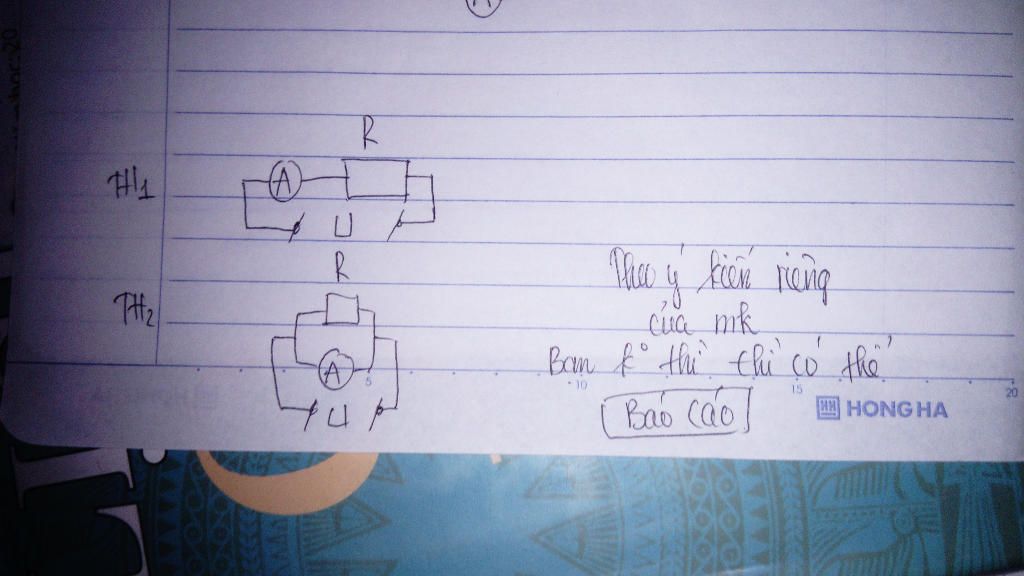 A
R
TH1
A
U
R
TH2
A
U
Theo ý kiến riêng
của mk
Bạn k° thì thì có thể
Báo cáo
5
10
15
20
HH HONG HA